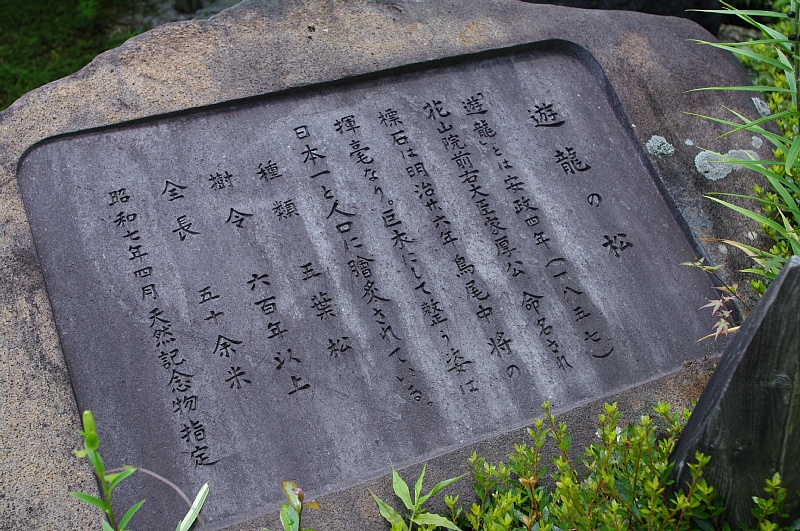 遊龍の松
「遊龍」とは安政四年(一八五七)
花山院前右大臣家厚公 命名され
標石は明治廿六年 鳥尾中将の
揮毫なり。巨木にして整う姿は
日本一と人口に膾炙されている。
種類 五葉松
樹令 六百年以上
全長 五十余米
昭和七年四月 天然記念物指定